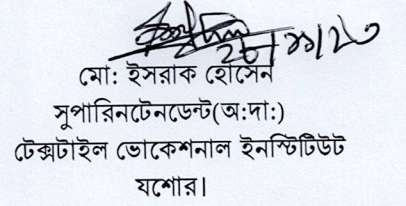 ২৮/১১/২৩
মো: ইসরাক হোসেন
সুপারিনটেনডেন্ট(অ:দা:)
টেক্সটাইল ভোকেশনাল ইনস্টিটিউট
যশোর।